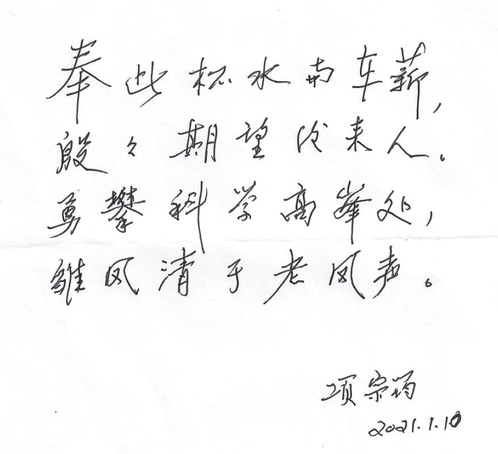 奉此杯水与车薪，
殷々期望后来人。
勇攀科学高峰处，
雏凤清于老凤声。
项宗筠
2021.1.10